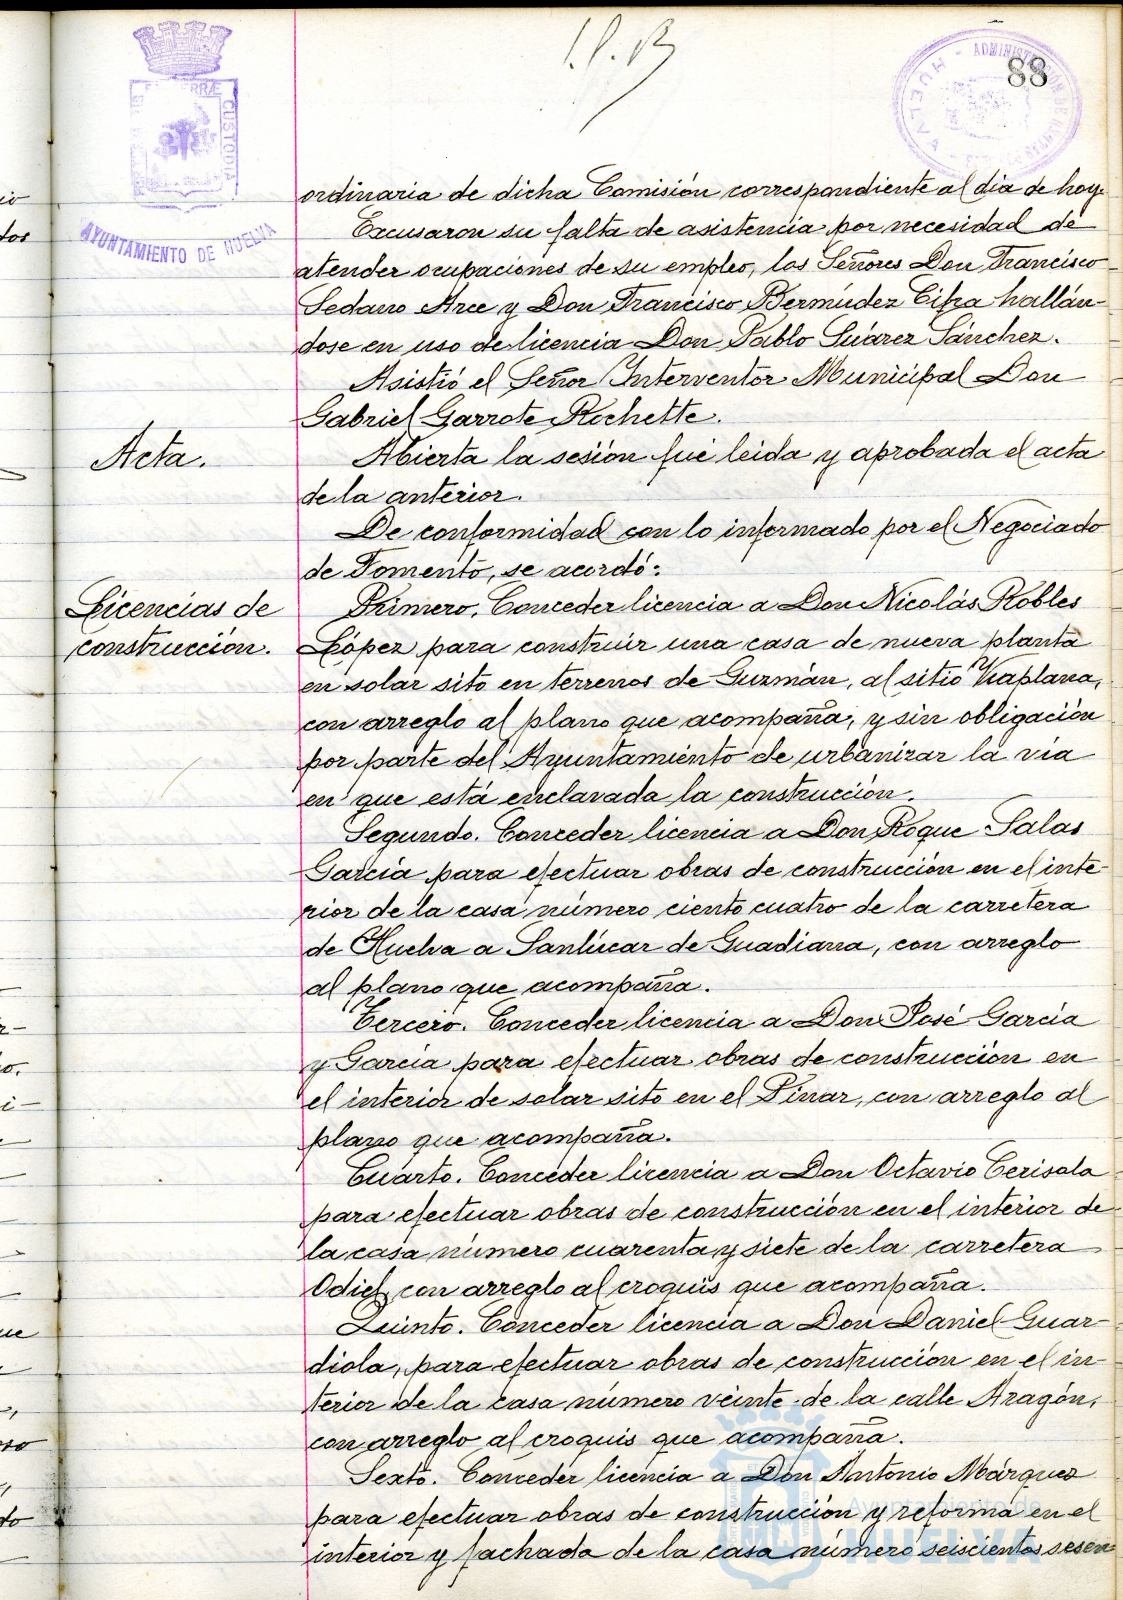 88
ADMINISTRACIÓN DE
HUELVA
CUSTODIA
AYUNTAMIENTO DE HUELVA
ordinaria de dicha Comisión correspondiente al día de hoy.
Excusaron su falta de asistencia por necesidad de
atender ocupaciones de su empleo, los Señores Don Francisco
Sedano Arce y Don Francisco Bermúdez Cifra hallán-
dose en uso de licencia Don Pablo Suárez Sánchez.
Asistió el Señor Interventor Municipal Don
Gabriel Garrote Rochette.
Acta.
Abierta la sesión fué leida y aprobada el acta
de la anterior.
De conformidad con lo informado por el Negociado
de Fomento, se acordó:
Licencias de
construcción.
Primero. Conceder licencia a Don Nicolás Robles
López para construir una casa de nueva planta
en solar sito en terrenos de Guzmán, al sitio Viaplana,
con arreglo al plano que acompaña, y sin obligación
por parte del Ayuntamiento de urbanizar la vía
en que está enclavada la construcción.
Segundo. Conceder licencia a Don Roque Salas
García para efectuar obras de construcción en el inte-
rior de la casa número ciento cuatro de la carretera
de Huelva a Sanlúcar de Guadiana, con arreglo
al plano que acompaña.
Tercero. Conceder licencia a Don José García
y García para efectuar obras de construcción en
el interior de solar sito en el Pinar, con arreglo al
plano que acompaña.
Cuarto. Conceder licencia a Don Octavio Cerisola
para efectuar obras de construcción en el interior de
la casa número cuarenta y siete de la carretera
Odiel, con arreglo al croquis que acompaña.
Quinto. Conceder licencia a Don Daniel Guar-
diola, para efectuar obras de construcción en el in-
terior de la casa número veinte de la calle Aragón,
con arreglo al croquis que acompaña.
Sexto. Conceder licencia a Don Antonio Márquez
para efectuar obras de construcción y reforma en el
interior y fachada de la casa número seiscientos sesen-
Ayuntamiento de
HUELVA